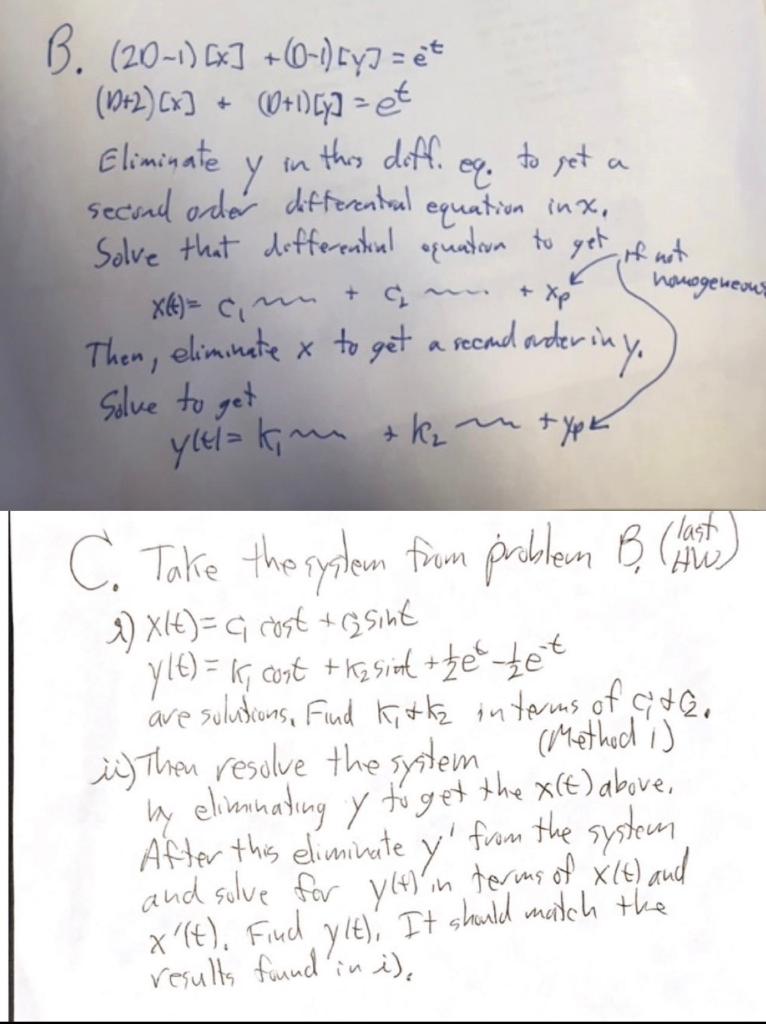 B. (2D-1)[x] + (D-1)[y] = e^-t
(D+2)[x] + (D+1)[y] = e^t
Eliminate y in this diff. eq. to get a
second order differential equation in x.
Solve that differential equation to get
if not
homogeneous
x(t) = c₁ ~~~ + c₂ ~~~ + xp
Then, eliminate x to get a second order in y.
Solve to get
y(t) = k₁ ~~~ + k₂ ~~~ + yp
C. Take the system from problem B. (last HW)
i) x(t) = c₁ cost + c₂ sint
y(t) = k₁ cost + k₂ sint + ½e^t - ½e^-t
are solutions. Find k₁ & k₂ in terms of c₁ & c₂.
(Method 1)
ii) Then resolve the system
by eliminating y to get the x(t) above.
After this eliminate y' from the system
and solve for y(t) in terms of x(t) and
x'(t). Find y(t). It should match the
results found in i).